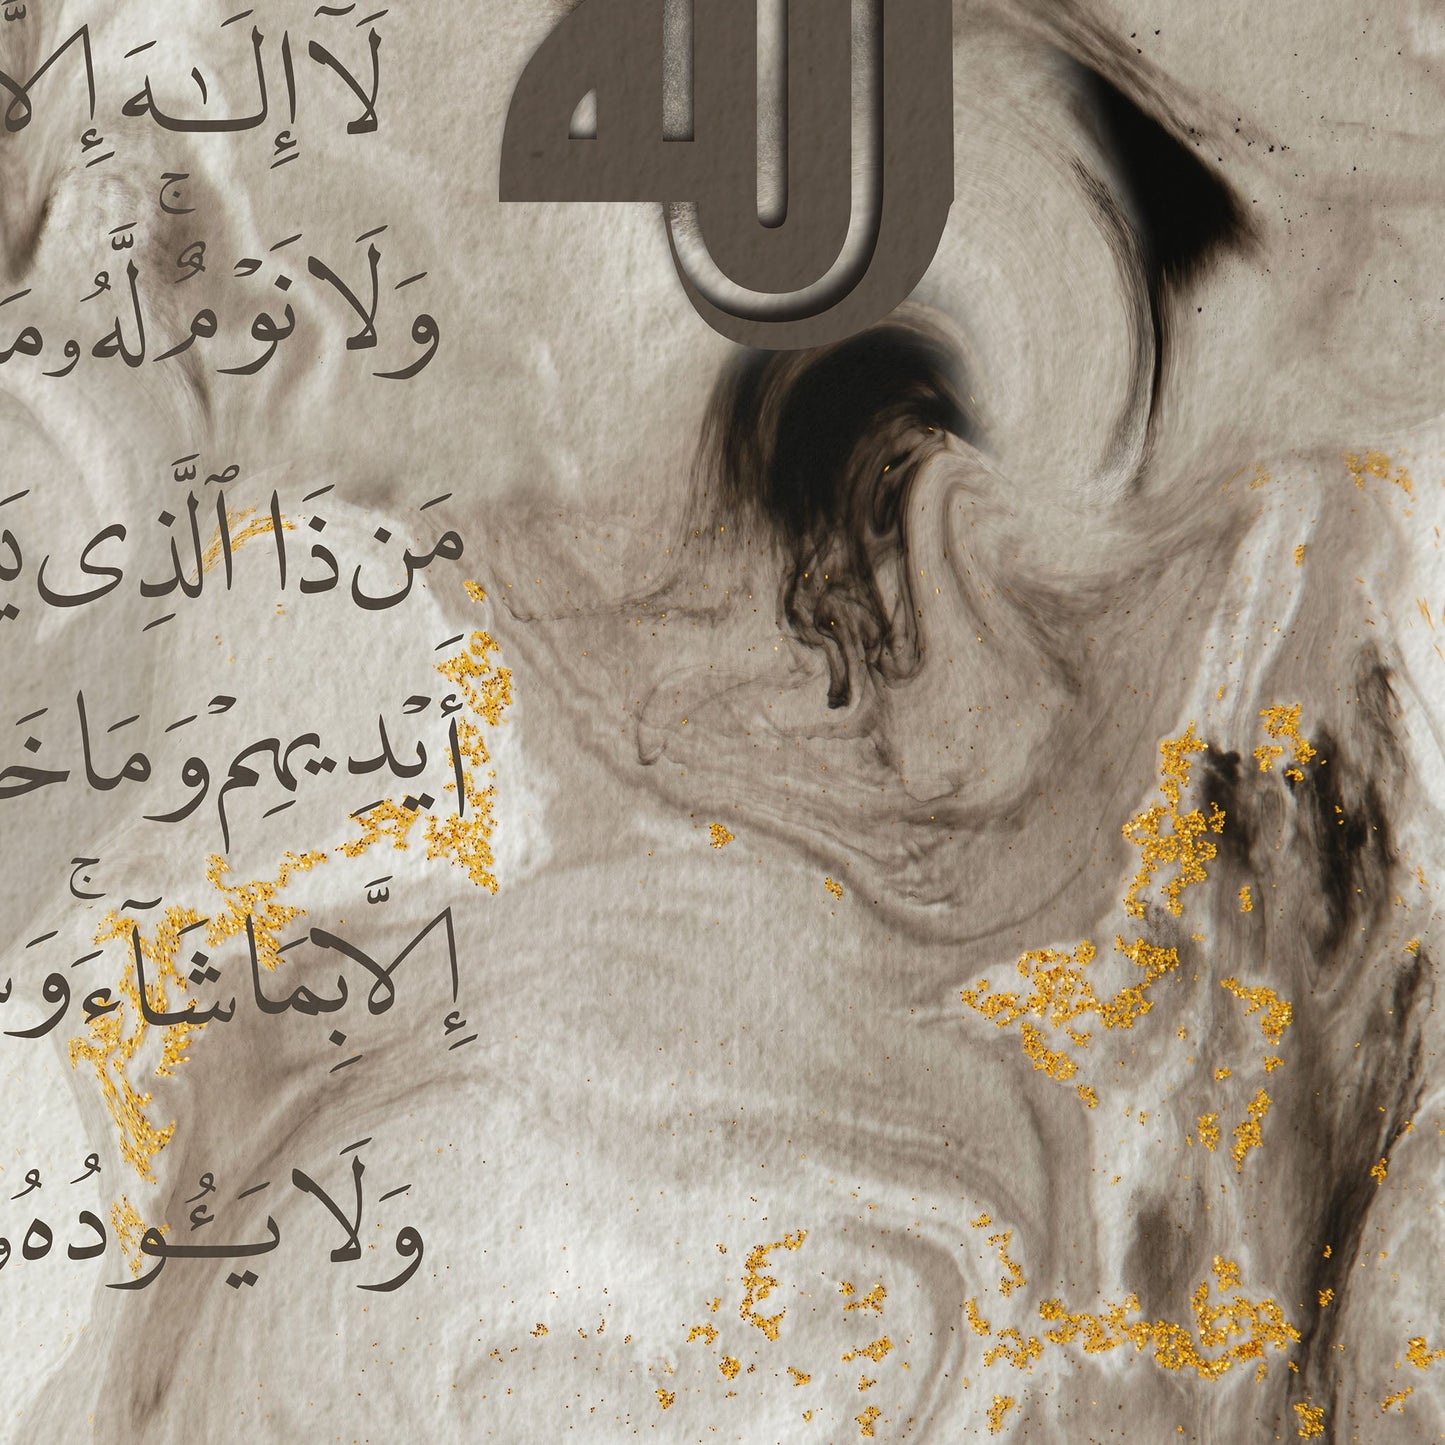 الله
لَآ إِلَـٰهَ إِلَّا
وَلَا نَوْمٌ ۚ لَّهُۥ مَ
مَن ذَا ٱلَّذِى يَ
أَيْدِيهِمْ وَمَا خَ
إِلَّا بِمَا شَآءَ ۚ وَسِ
وَلَا يَـُٔودُهُۥ